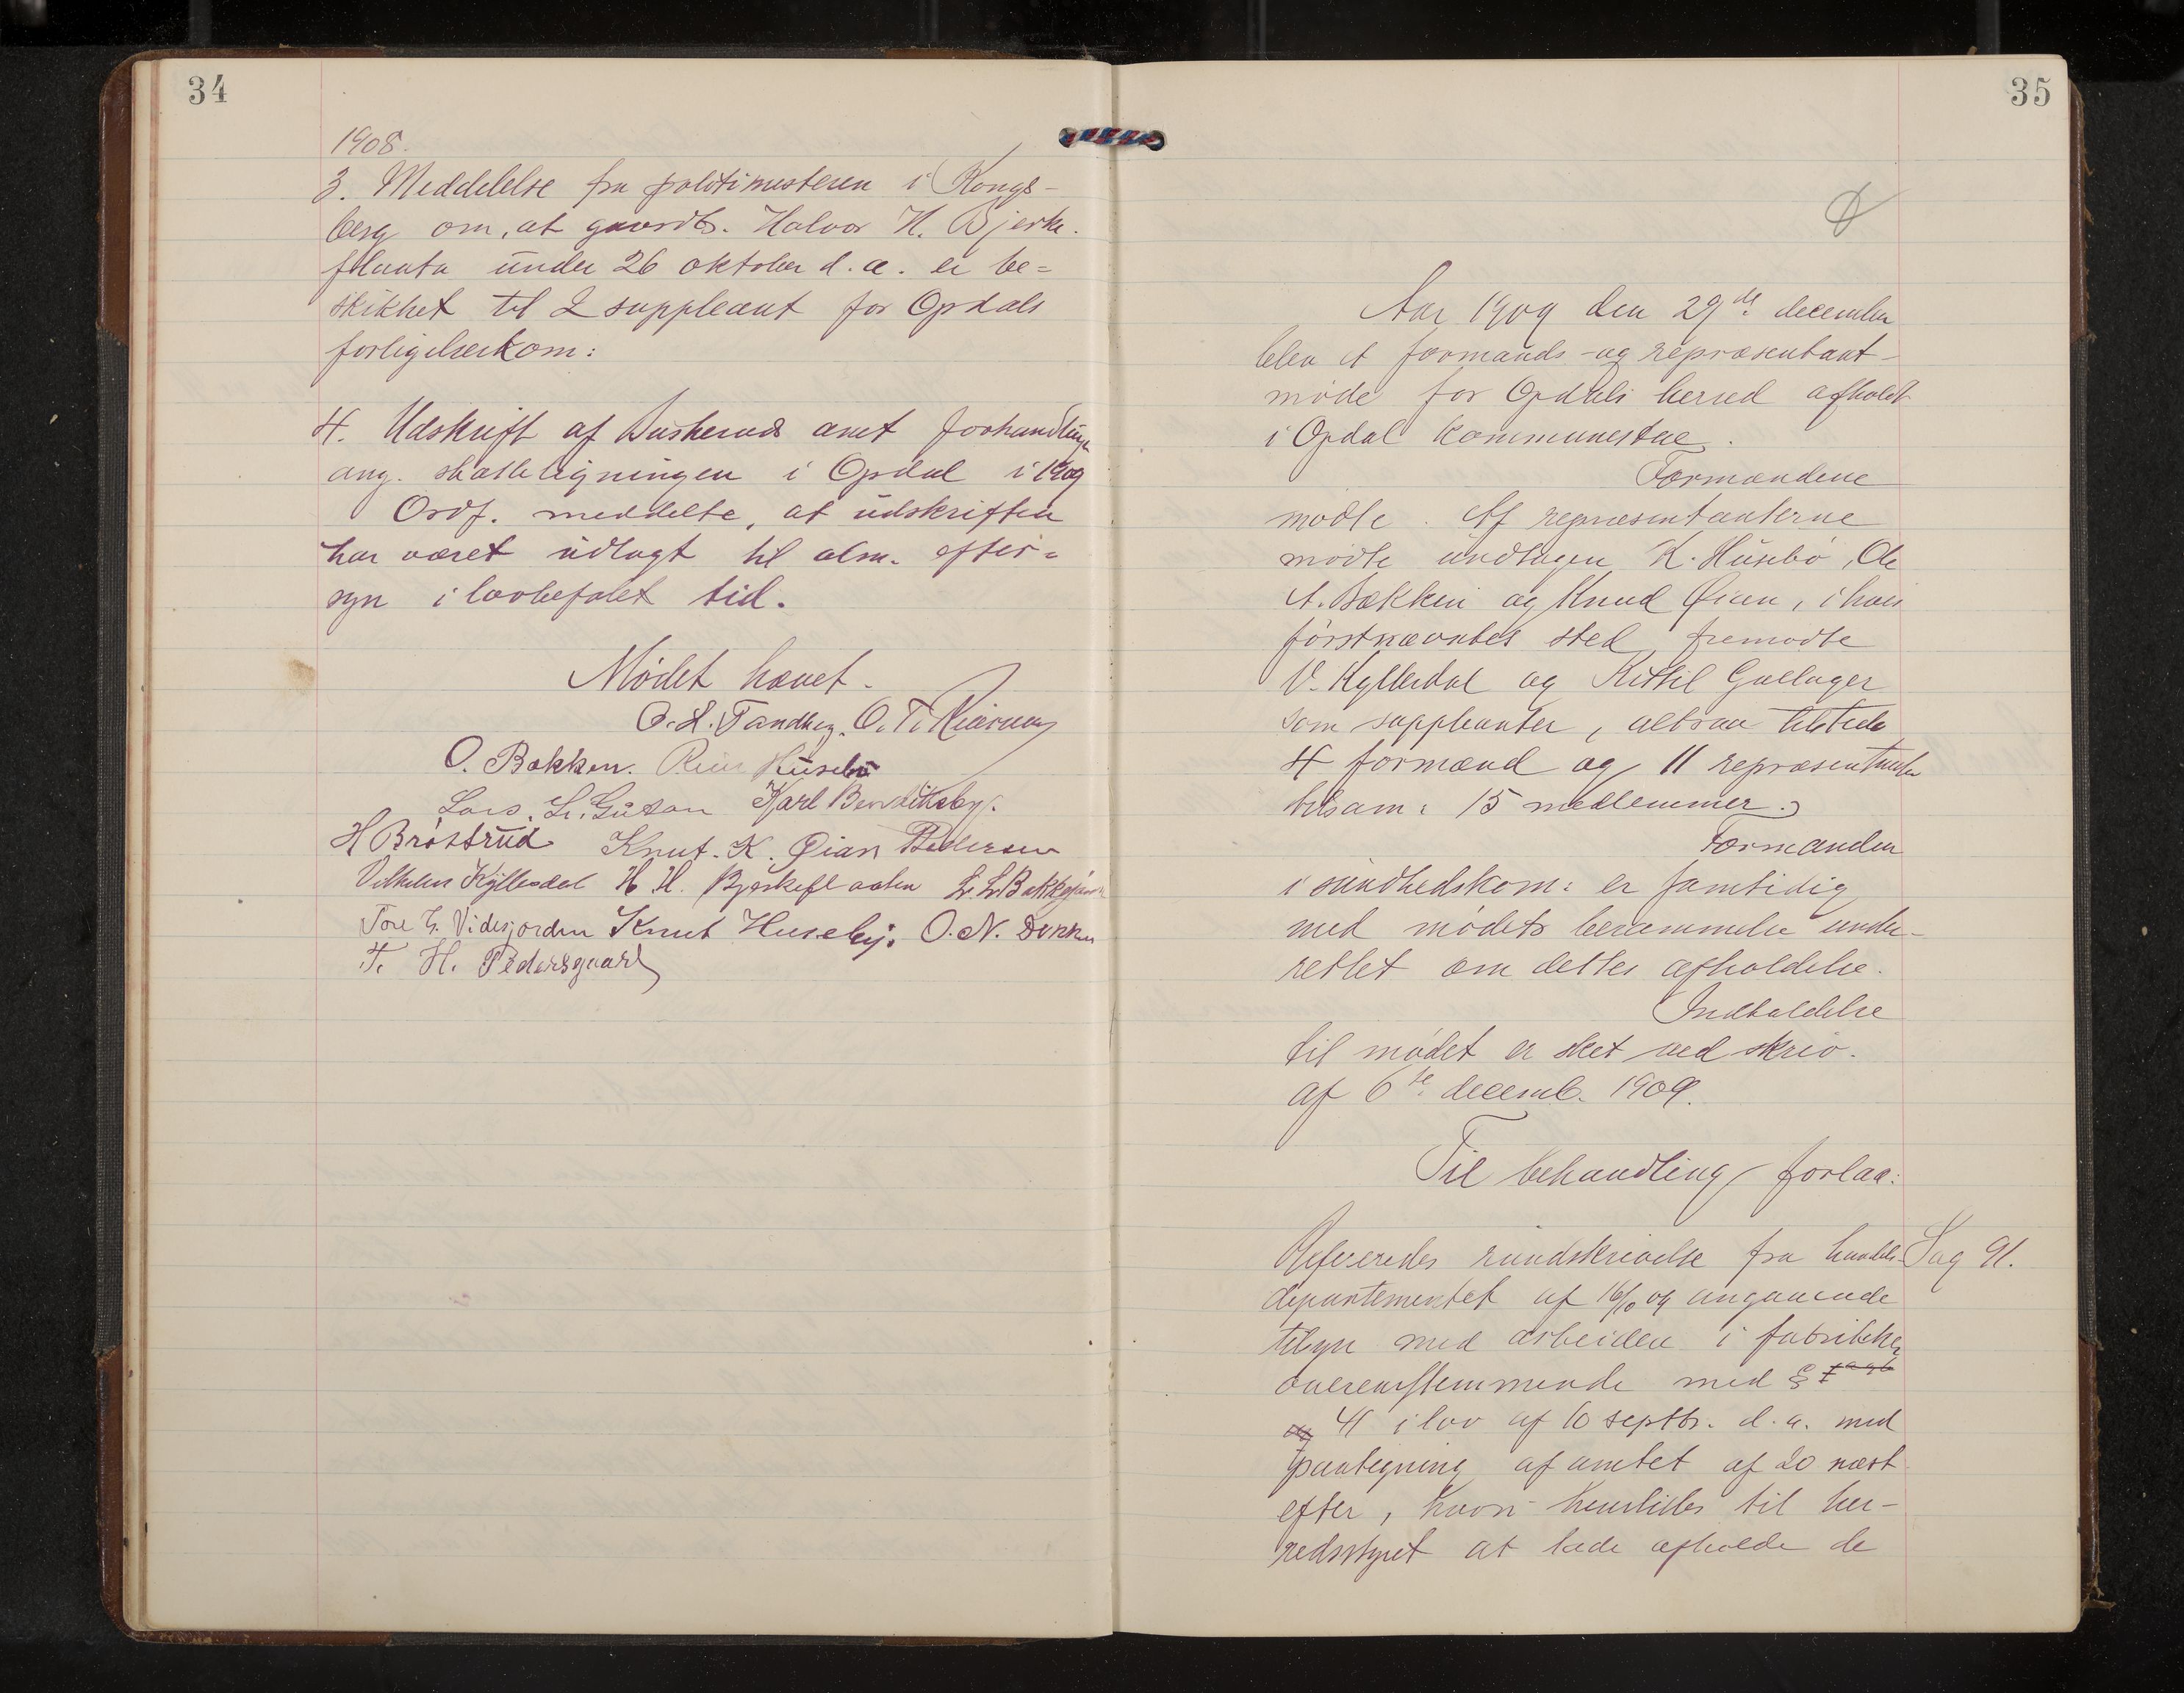 34
1908.
3. Meddelelse fra politimesteren i Kongs-
berg om, at gaardbr. Halvor H. Bjerke-
flaata under 26 oktober d.a. er be=
skikket til 2 suppleant for Opdals
forligelseskom:
4. Udskrift af Buskeruds amt forhandlinger
ang. skatteligningen i Opdal i 1909
Ordf. meddelte, at udskriften
har været udlagt til alm. efter=
syn i lovbefalet tid.
Mødet hævet.
O. T.
O. Bakken. Huseby
Lars. Karl
H Brøstrud Knut. K. Øian Pedersen
Vilhelm Kyllesdal H H. Bjerkeflaaten
Tore G. Videsjorden Knut Huseby. O. N.
T. H. Pedersgaard
35
Aar 1909 den 29de december
blev et formands- og repræsentant-
møde for Opdals herred afholdt
i Opdal kommunestue.
Formændene
mødte. Af repræsentanterne
mødte undtagen K. Husebø, Ole
A. Bækken og Knud Øien, i hvis
førstnævntes sted fremødte
V. Kyllesdal og Kittil
som suppleanter, altsaa tilstede
4 formænd og 11 repræsentanter
tilsam: 15 medlemmer.
Formanden
i sundhedskom: er samtidig
med mødets berammelse under-
rettet om dettes afholdelse.
Indkaldelse
til mødet er skeet ved skriv.
af 6te decemb. 1909.
Til behandling forlaa:
Refereredes rundskrivelse fra handels- Sag 91.
departementet af 16/10 09 angaaende
tilsyn med arbeidere i fabrikker
overensstemmende med §
og 41 i lov af 10 septbr. d.a. med
paategning af amtet af 20 næst
efter, hvori henstilles til her-
redsstyret at lade afholde de